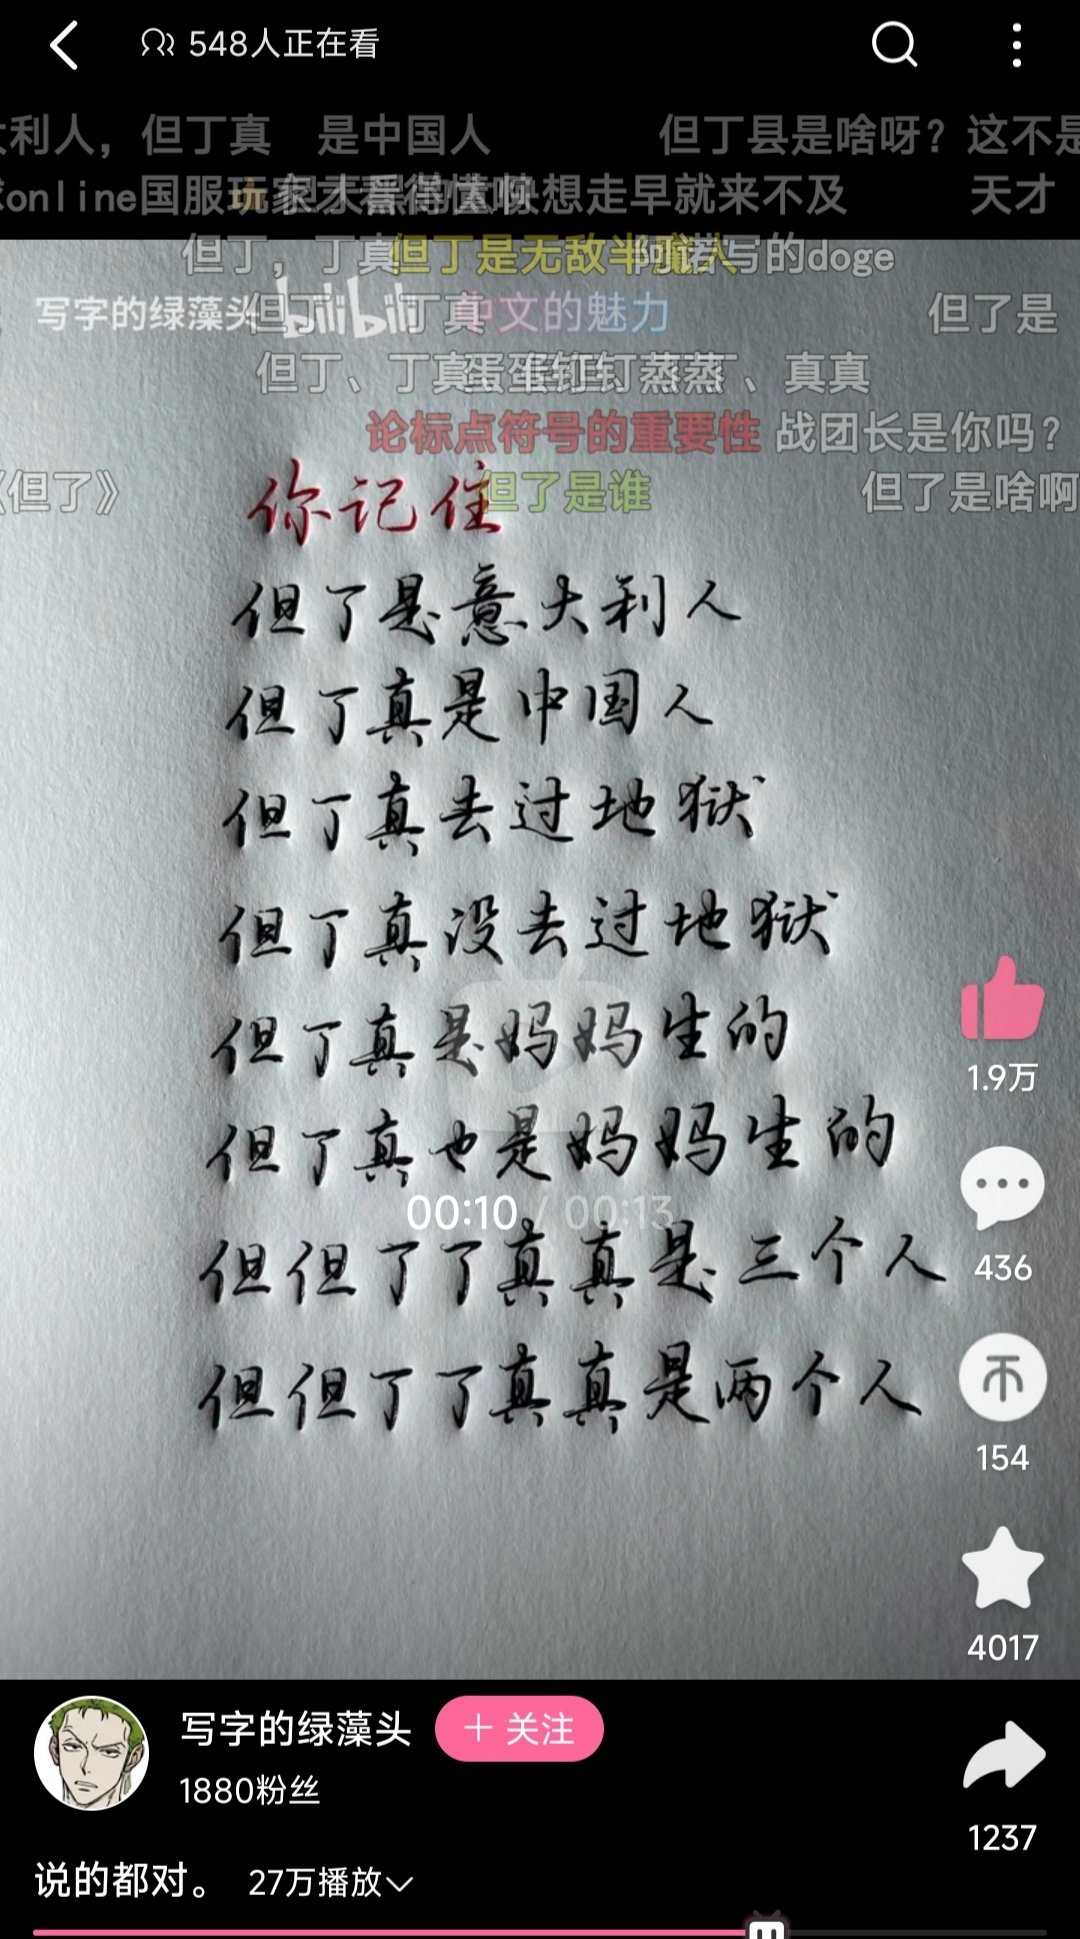 548人正在看
利人，但丁真　是中国人
但丁县是啥呀？这不是
online国服玩家
想走早就来不及
天才
但丁，丁真
但丁是无敌半魔人
阿诺写的doge
写字的绿藻头
bilibili
丁真
中文的魅力
但了是
但丁、丁真
、真真
论标点符号的重要性
战团长是你吗？
《但了》
但了是谁
但了是啥啊
你记住
但丁是意大利人
但丁真是中国人
但丁真去过地狱
但丁真没去过地狱
但丁真是妈妈生的
但丁真也是妈妈生的
00:10 / 00:13
但但丁丁真真是三个人
但但丁丁真真是两个人
1.9万
436
154
4017
写字的绿藻头
+ 关注
1880粉丝
1237
说的都对。 27万播放